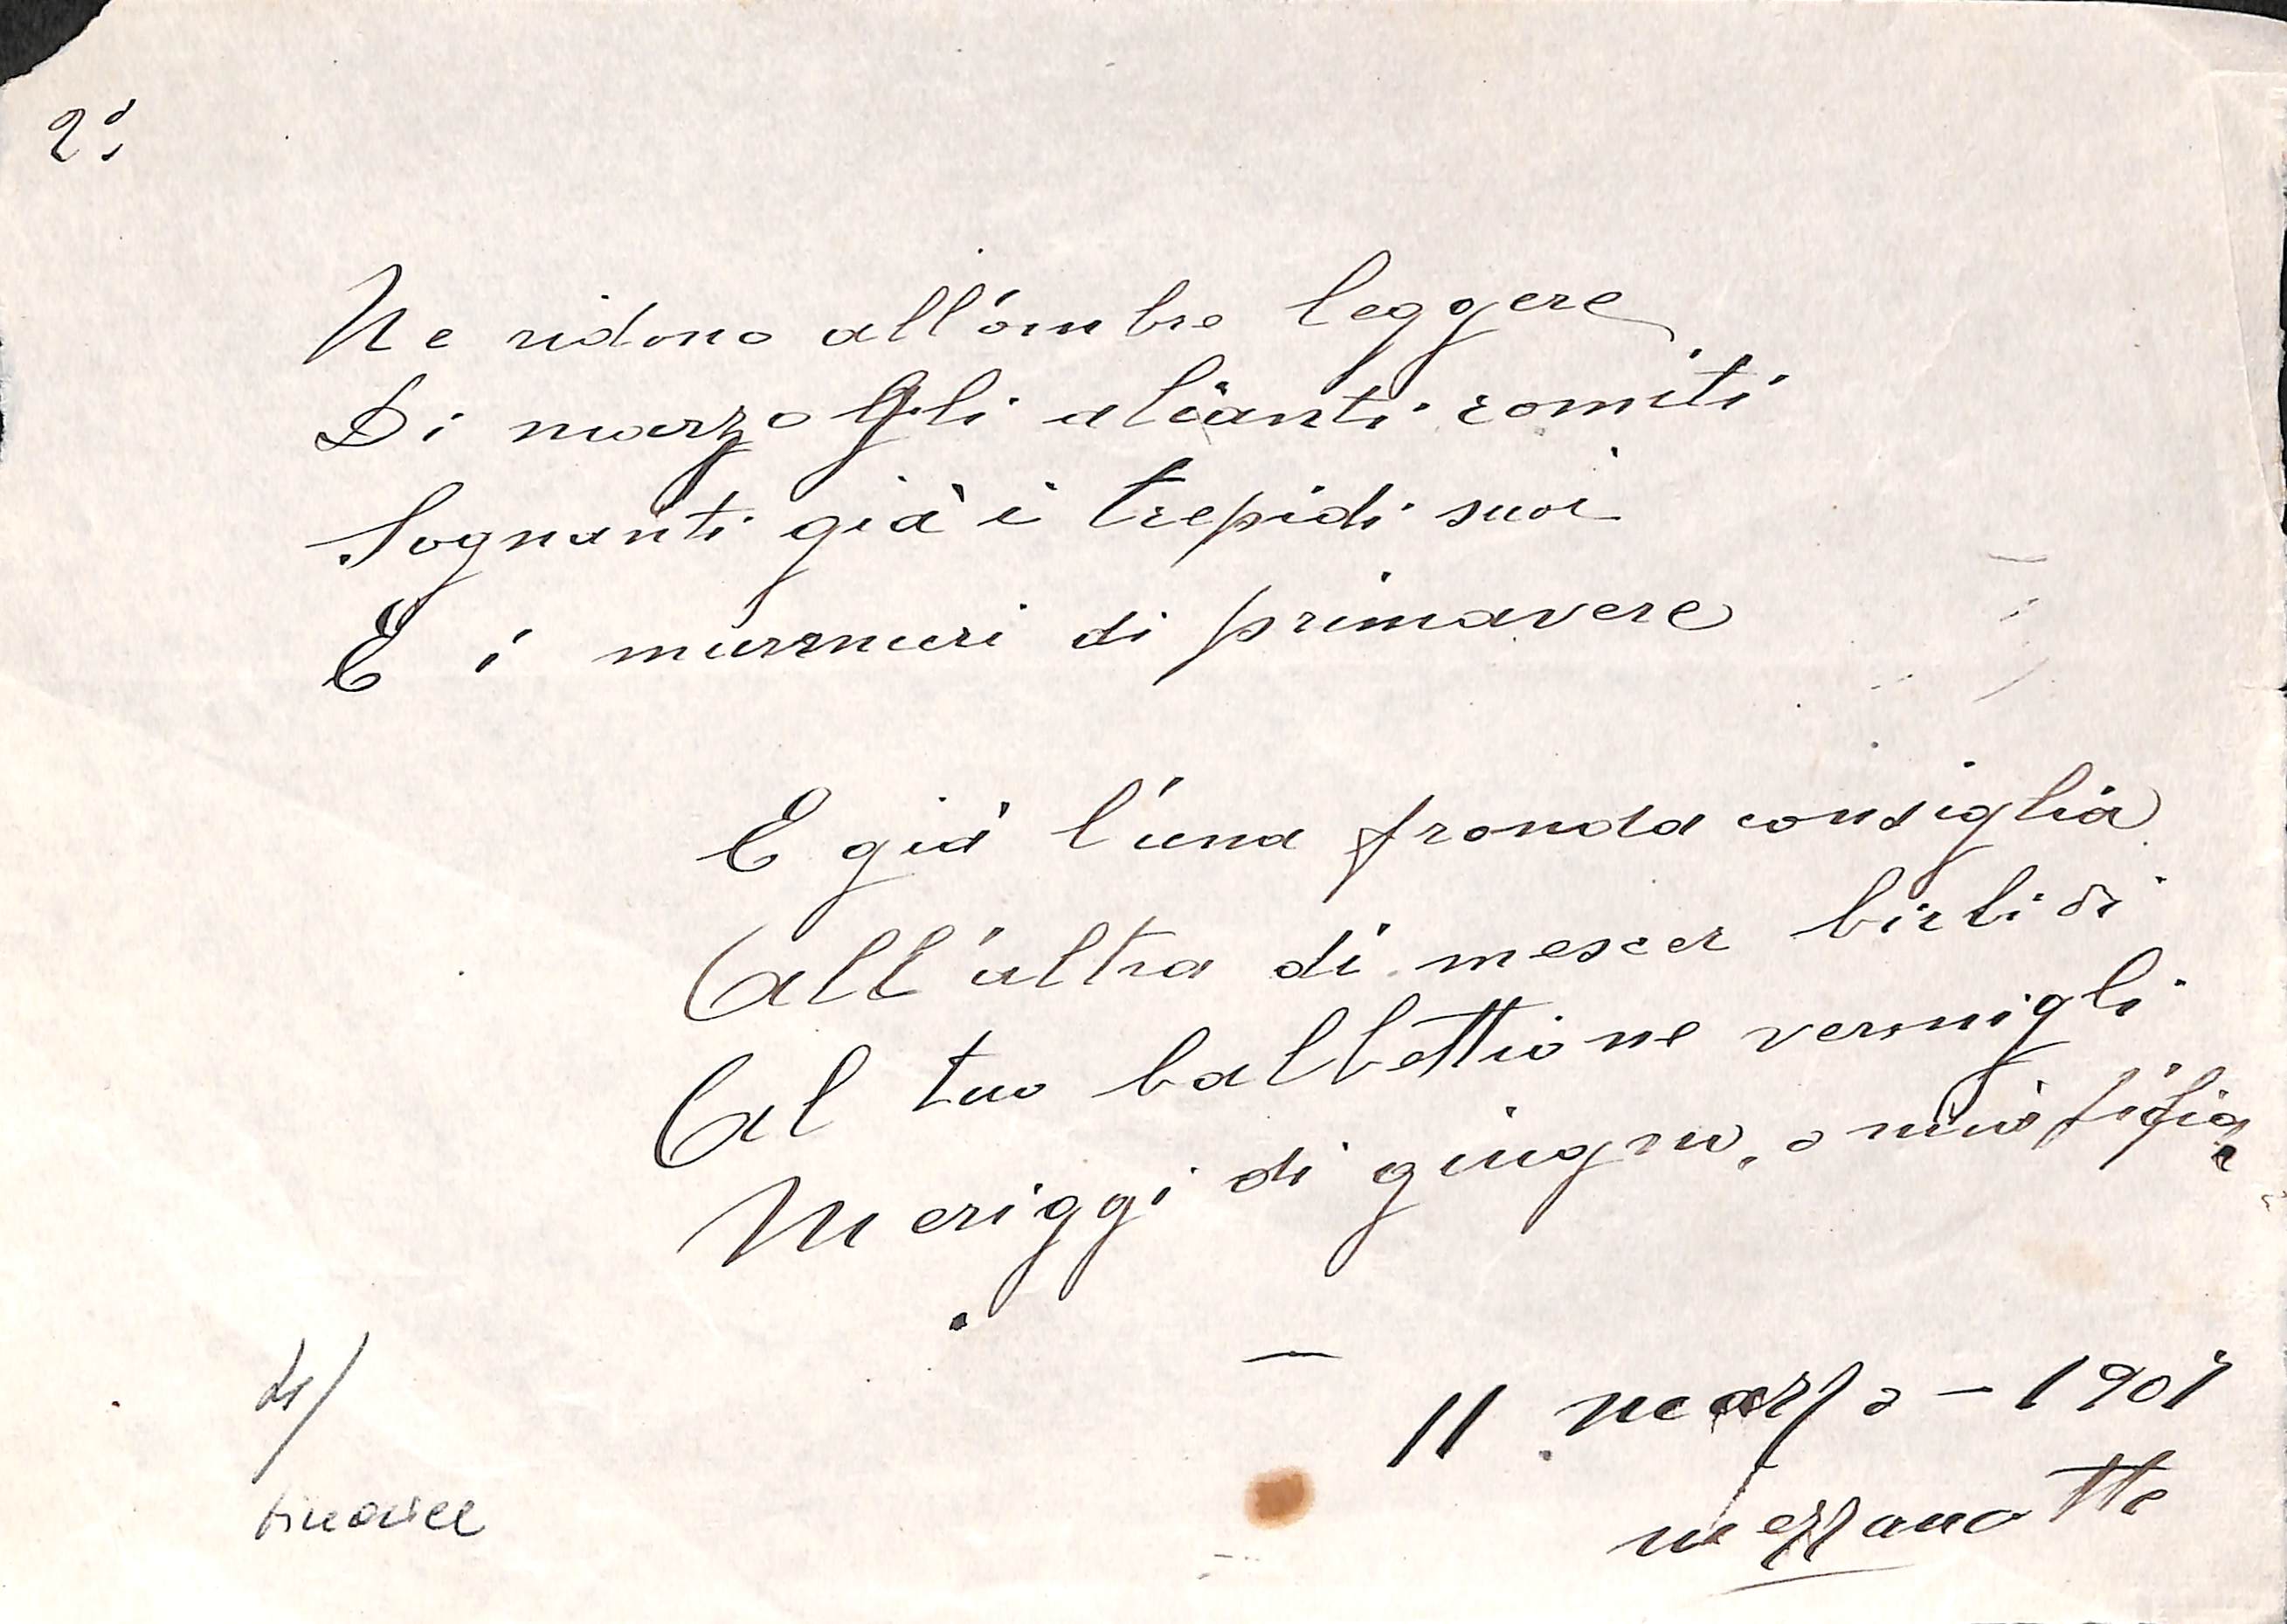 2º
Ne ridono all'ombre leggere
Di marzo Gli alianti romiti
Sognanti già i trepidi suoi
E i murmuri di primavere
E già l'una fronda consiglia
All'altra di mescer birbi di
Al tuo balbettio ne vermigli
Meriggi di giugno, o mia
—
11 marzo - 1901
mezzanotte